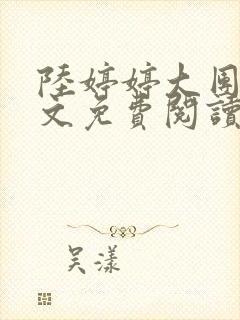 陸婷婷大圍
文免費閱讀
吳漾